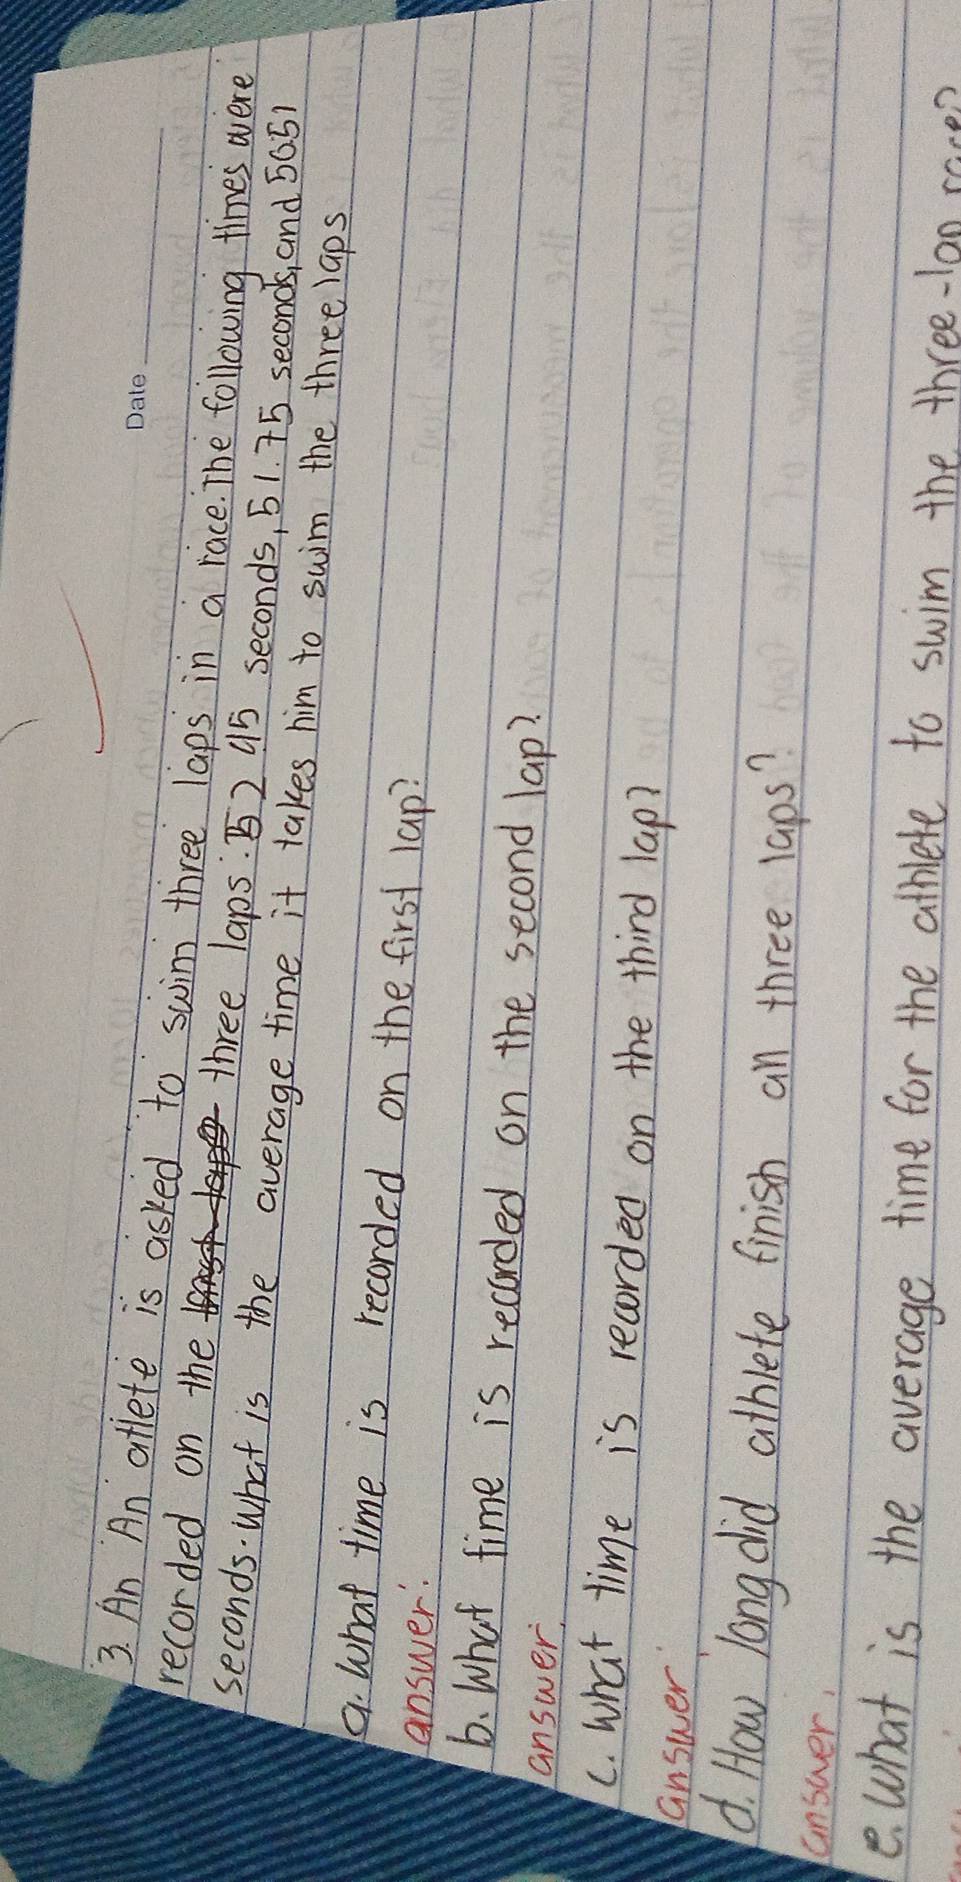 Date
3. An An atlete is asked to swim three laps in a race. The following times were
recorded on the three laps: 52 45 seconds, 51.75 seconds, and 50.51
seconds. what is the average time it takes him to swim the three laps
a. what time is recorded on the first lap?
answer:
b. what time is recorded on the second lap?
answer
c. what time is recorded on the third lap?
answer
d. How long did athlete finish all three laps?
answer.
e. what is the average time for the athlete to swim the three-lap race?